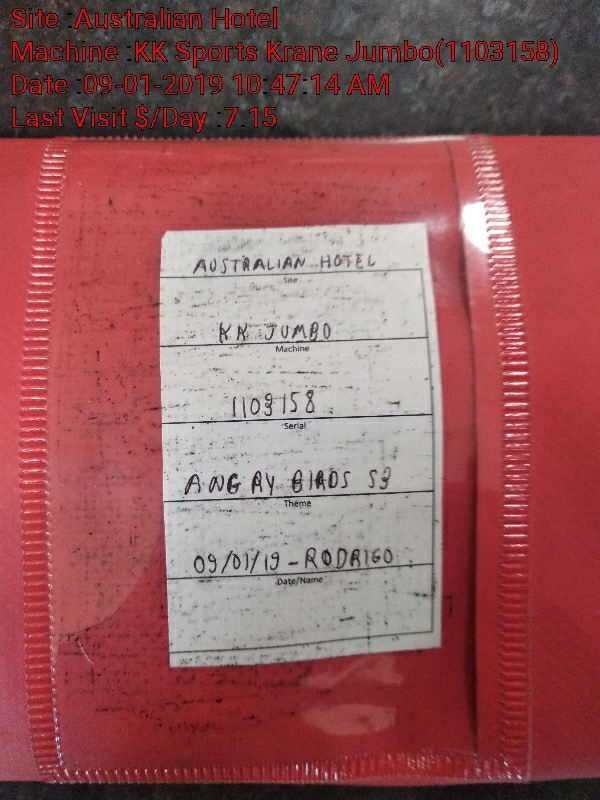 Site :Australian Hotel
Machine :KK Sports Krane Jumbo(1103158)
Date :09-01-2019 10:47:14 AM
Last Visit $/Day :7.15
AUSTRALIAN HOTEL
Site
KK JUMBO
Machine
1103158
Serial
ANGRY BIRDS S3
Theme
09/01/19 - RODRIGO
Date/Name